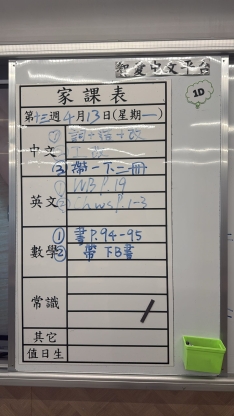 智愛中文平台
1D
家課表
第十三週4月13日(星期一)
中文
① 詞+結+改
② 工改
③ 帶一下二冊
英文
① WB P.19
② Ch WS P.1-3
數學
① 書P.94-95
② 帶下B書
常識
其它
值日生